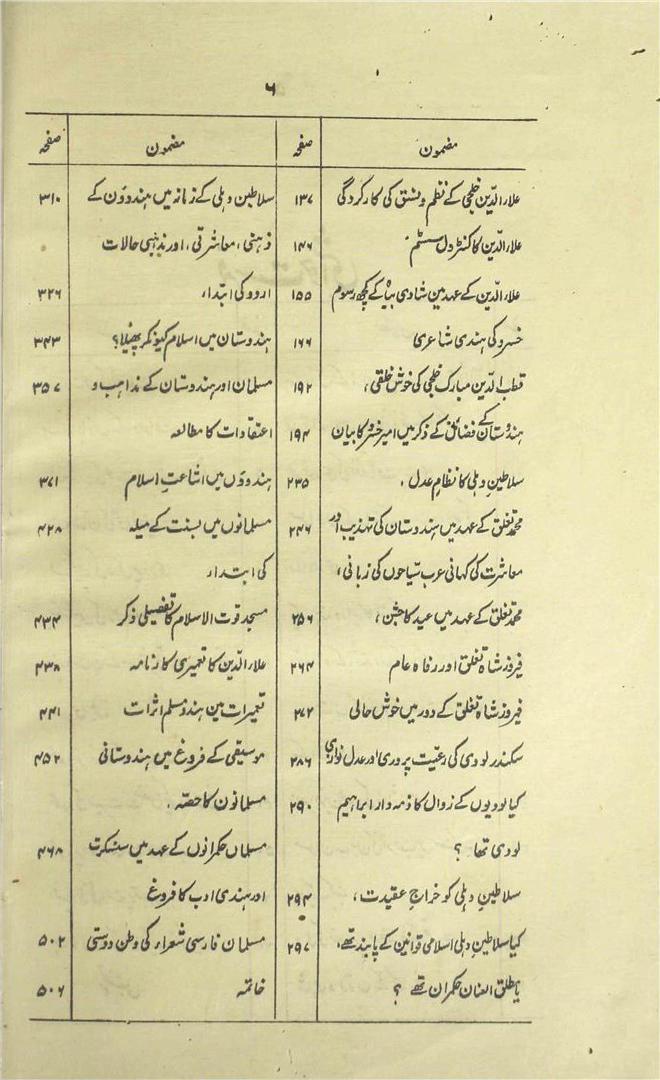 ۶
مضمون صفحہ
علاء الدین خلجی کے نظم و نسق کی کارکردگی ۱۳۷
علاء الدین کا کنٹرول سسٹم ۱۴۶
علاء الدین کے عہد مین شادی بیاہ کے کچھ رسوم ۱۵۵
خسرو کی ہندی شاعری ۱۶۶
قطب الدین مبارک خلجی کی خوش خلقی، ۱۹۲
ہندوستان کے فضائل کے ذکر میں امیر خسرو کا بیان ۱۹۴
سلاطینِ دہلی کا نظامِ عدل، ۲۳۵
محمد تغلق کے عہد میں ہندوستان کی تہذیب اور ۲۴۶
معاشرت کی کہانی عرب سیاحوں کی زبانی،
محمد تغلق کے عہد میں عید کا جشن، ۲۵۶
فیروز شاہ تغلق اور رفاہ عام ۲۶۴
فیروز شاہ تغلق کے دور میں خوش حالی ۲۷۲
سکندر لودی کی رعیت پروری اور عدل نوازی ۲۸۶
کیا لودیوں کے زوال کا ذمہ دار ابراہیم ۲۹۰
لودی تھا ؟
سلاطینِ دہلی کو خراجِ عقیدت، ۲۹۴
کیا سلاطینِ دہلی اسلامی قوانین کے پابند تھے، ۲۹۷
یا مطلق العنان حکمران تھے ؟
مضمون صفحہ
سلاطین دہلی کے زمانہ میں ہندوؤن کے ۳۱۰
ذہنی، معاشرتی، اور مذہبی حالات
اردو کی ابتداء ۳۲۶
ہندوستان میں اسلام کیونکر پھیلا؟ ۳۴۳
مسلمان اور ہندوستان کے مذاہب و ۳۵۷
اعتقادات کا مطالعہ
ہندوؤں میں اشاعتِ اسلام ۳۷۱
مسلمانوں میں بسنت کے میلہ ۴۲۸
کی ابتداء
مسجد قوت الاسلام کا تفصیلی ذکر ۴۳۴
علاء الدین کا تعمیری کارنامہ ۴۳۸
تعمیرات مین ہندو مسلم اثرات ۴۴۱
موسیقی کے فروغ میں ہندوستانی ۴۵۲
مسلمانون کا حصّہ،
مسلمان حکمرانوں کے عہد میں سنسکرت ۴۶۸
اور ہندی ادب کا فروغ
مسلمان فارسی شعراء کی وطن دوستی ۵۰۲
خاتمہ ۵۰۶